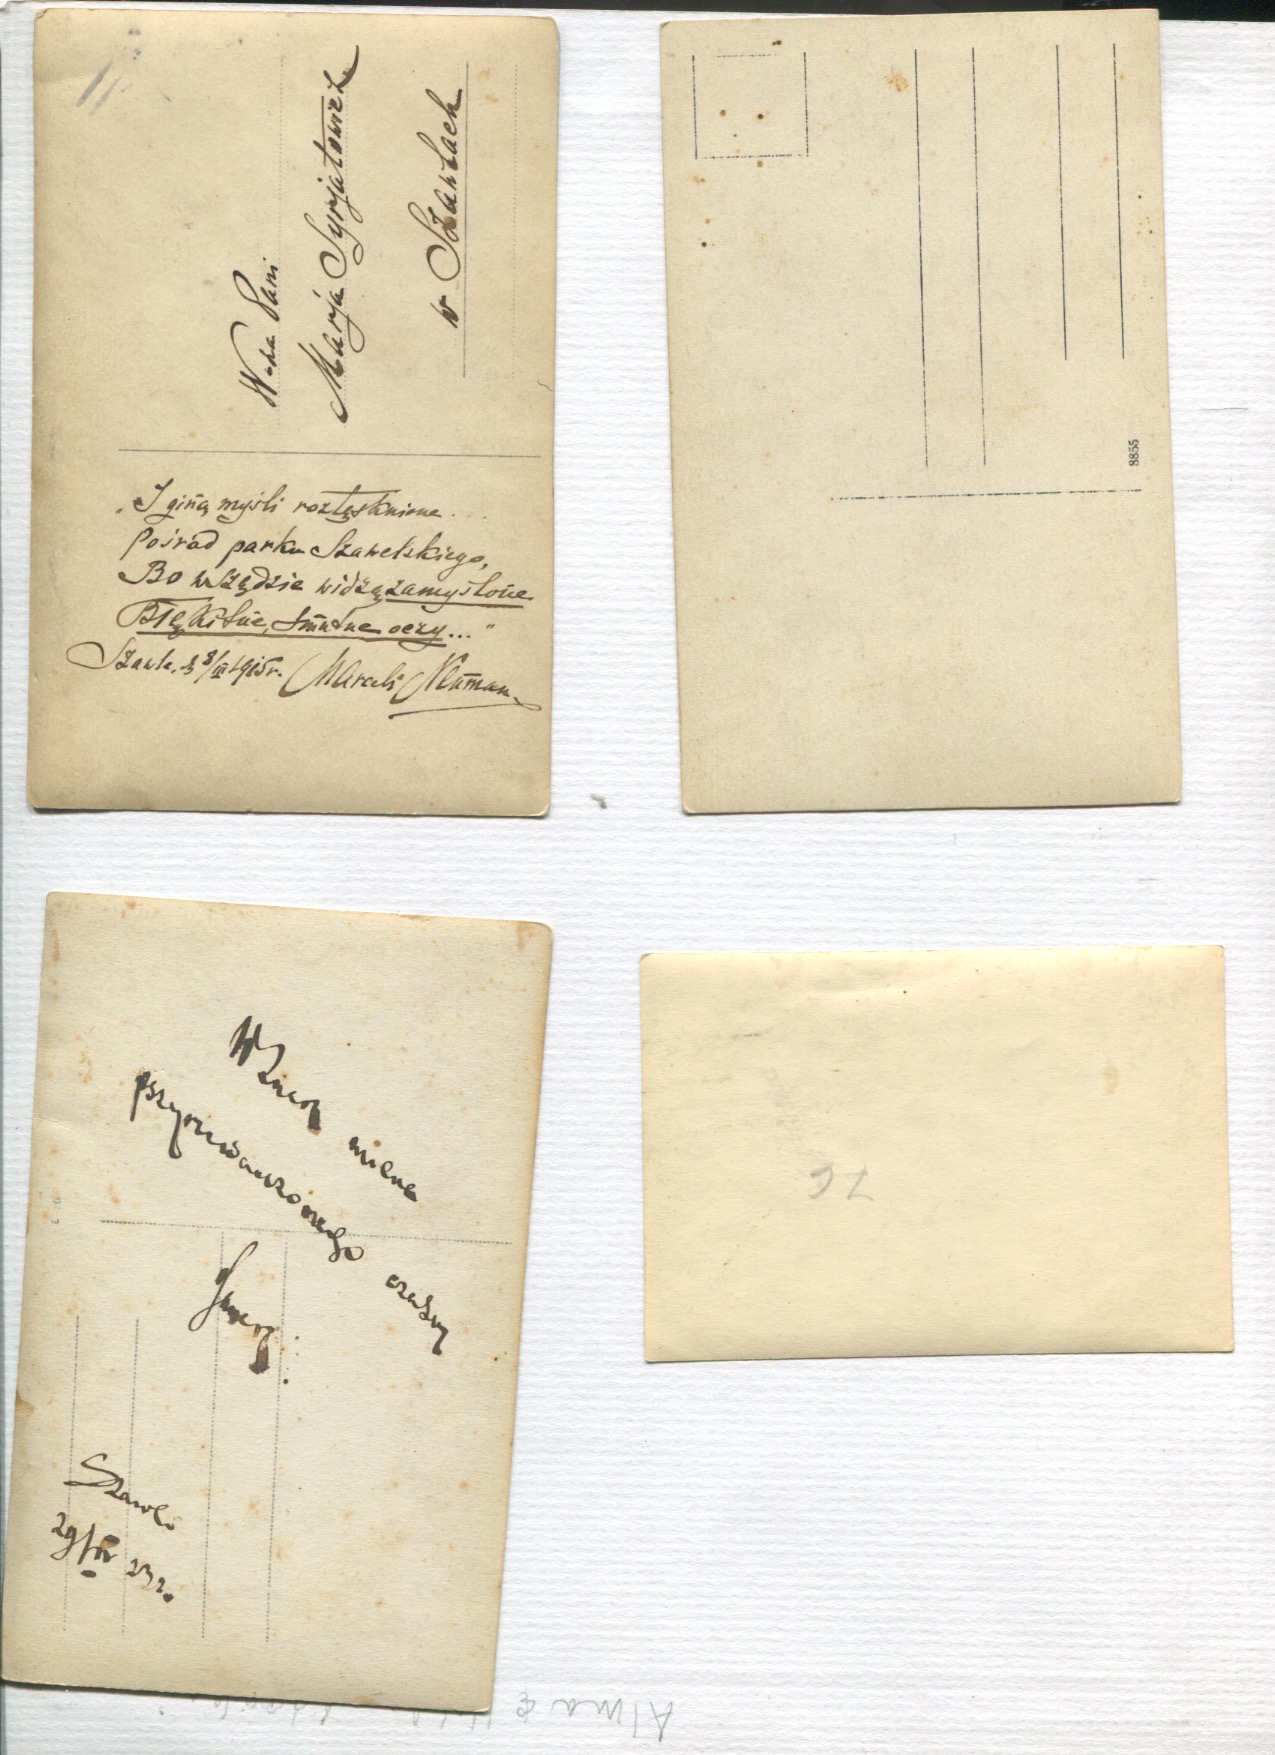 W-na Pani
Marja Syrjatowicz
w Szawlach
„I giną myśli roztęsknione...
Pośród parku Szawelskiego,
Bo wszędzie widzę zamyślone
Błękitne, smutne oczy..."
Szawle, d 8/III 1915r. Marceli Neuman
8855
W
przyniewanszonego
Szawle
29/IV 23 r.
76
Alma